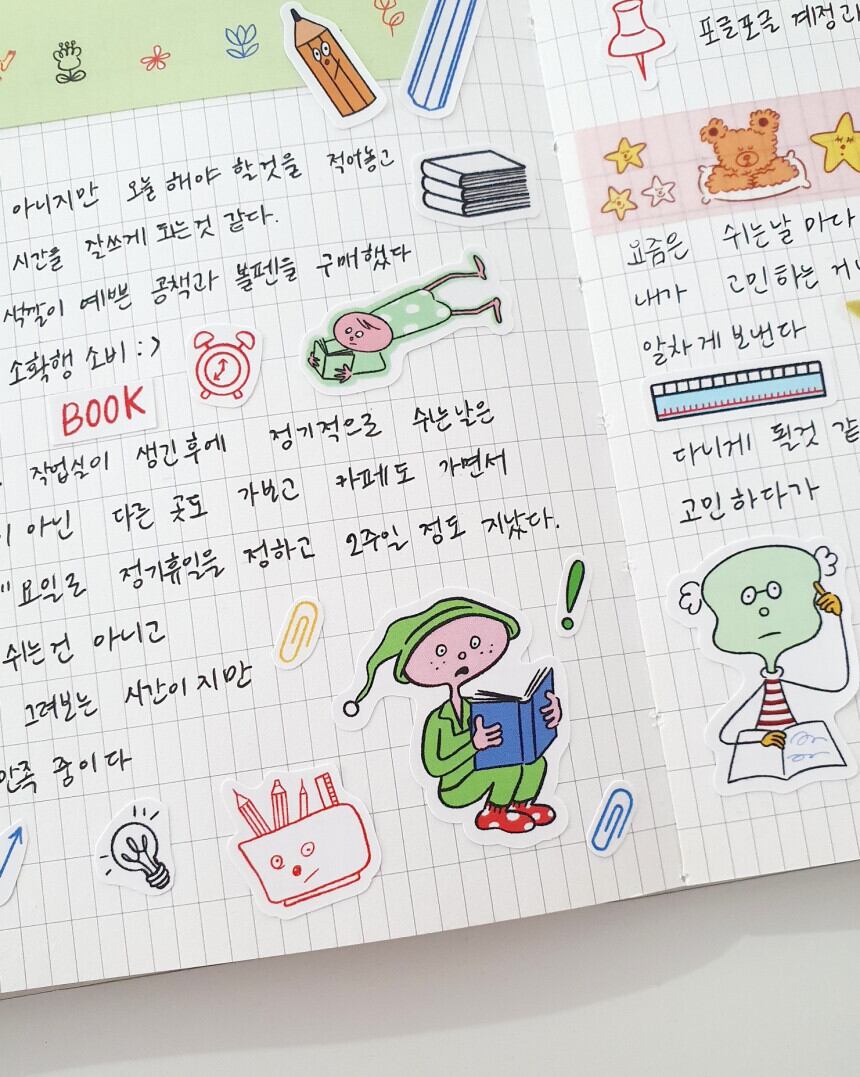 아니지만 오늘 해야 할것을 적어놓고
시간을 잘쓰게 되는것 같다.
색깔이 예쁜 공책과 볼펜을 구매했다
소확행 소비 : >
BOOK
작업실이 생긴후에 정기적으로 쉬는날은
아닌 다른 곳도 가보고 카페도 가면서
요일로 정기휴일을 정하고 2주일 정도 지났다.
쉬는건 아니고
그려보는 시간이지만
만족 중이다
포글포글 계정과
요즘은 쉬는날 마다
내가 고민하는
알차게 보낸다
다니게 될것 같
고민하다가